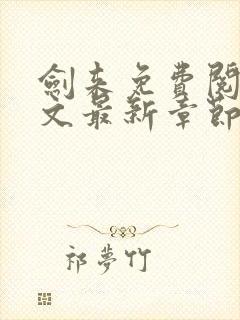 劍来免費閱
文最新章節
祁夢竹